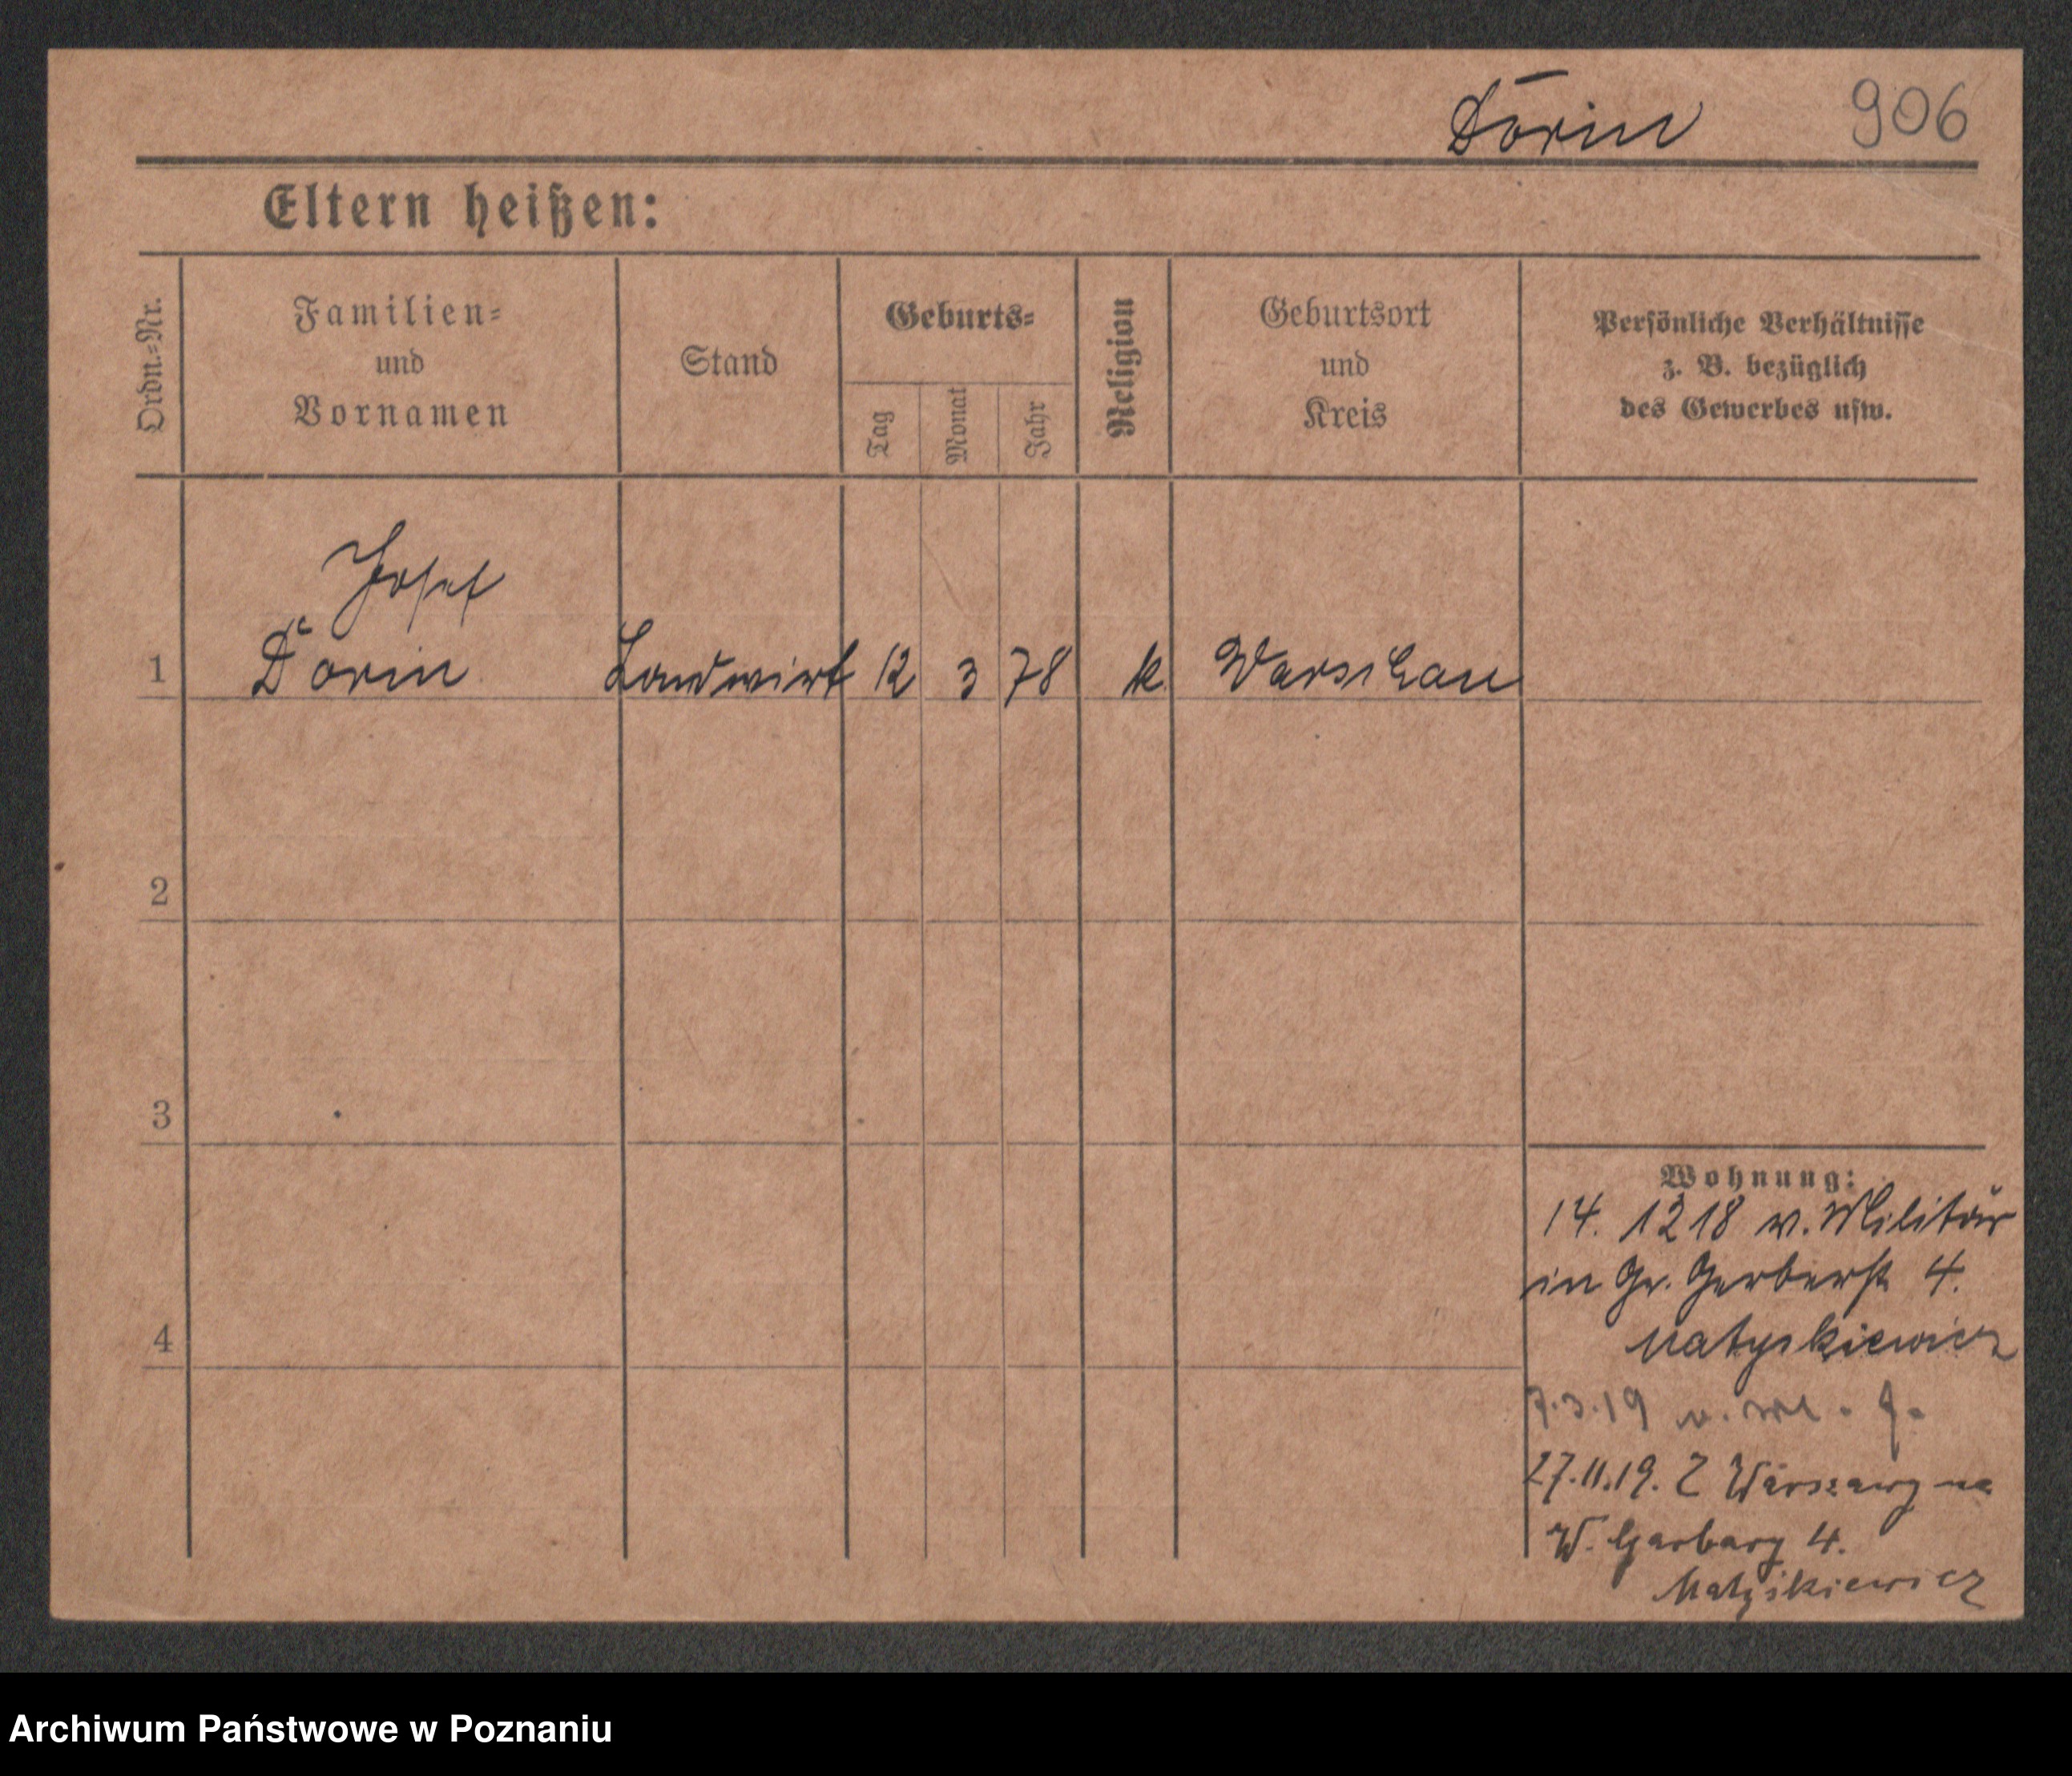 Dörin 906
Eltern heißen:
Ordn.-Nr.
Familien-
und
Vornamen
Stand
Geburts-
Tag
Monat
Jahr
Religion
Geburtsort
und
Kreis
Persönliche Verhältnisse
z. B. bezüglich
des Gewerbes usw.
Josef
1 Dörin Landwirt 12 3 78 k. Warschau
2
3
4
Wohnung:
14. 12 18 v. Militär
in Gr. Gerberst. 4.
Matyskiewicz
7.3.19 v.
27.11.19. Z Warszawy na
W. Garbary 4.
Matyskiewicz
Archiwum Państwowe w Poznaniu